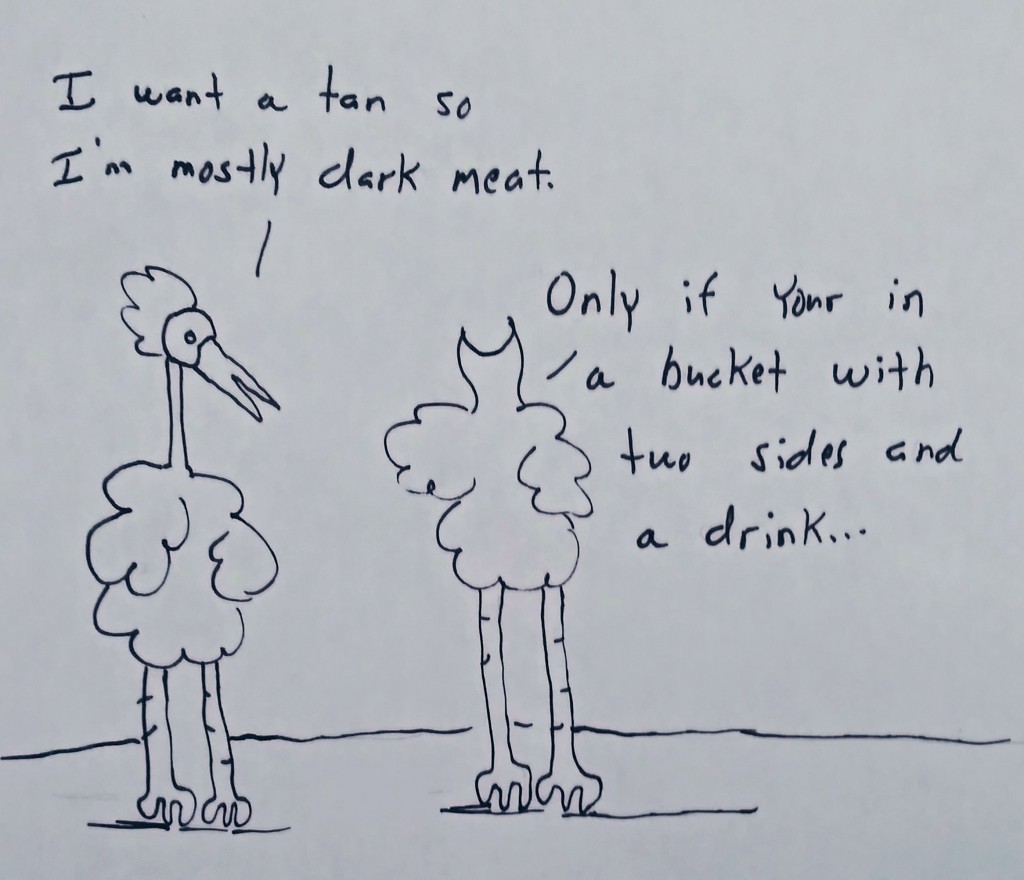 I want a tan so
I'm mostly dark meat.
Only if Your in
a bucket with
two sides and
a drink...